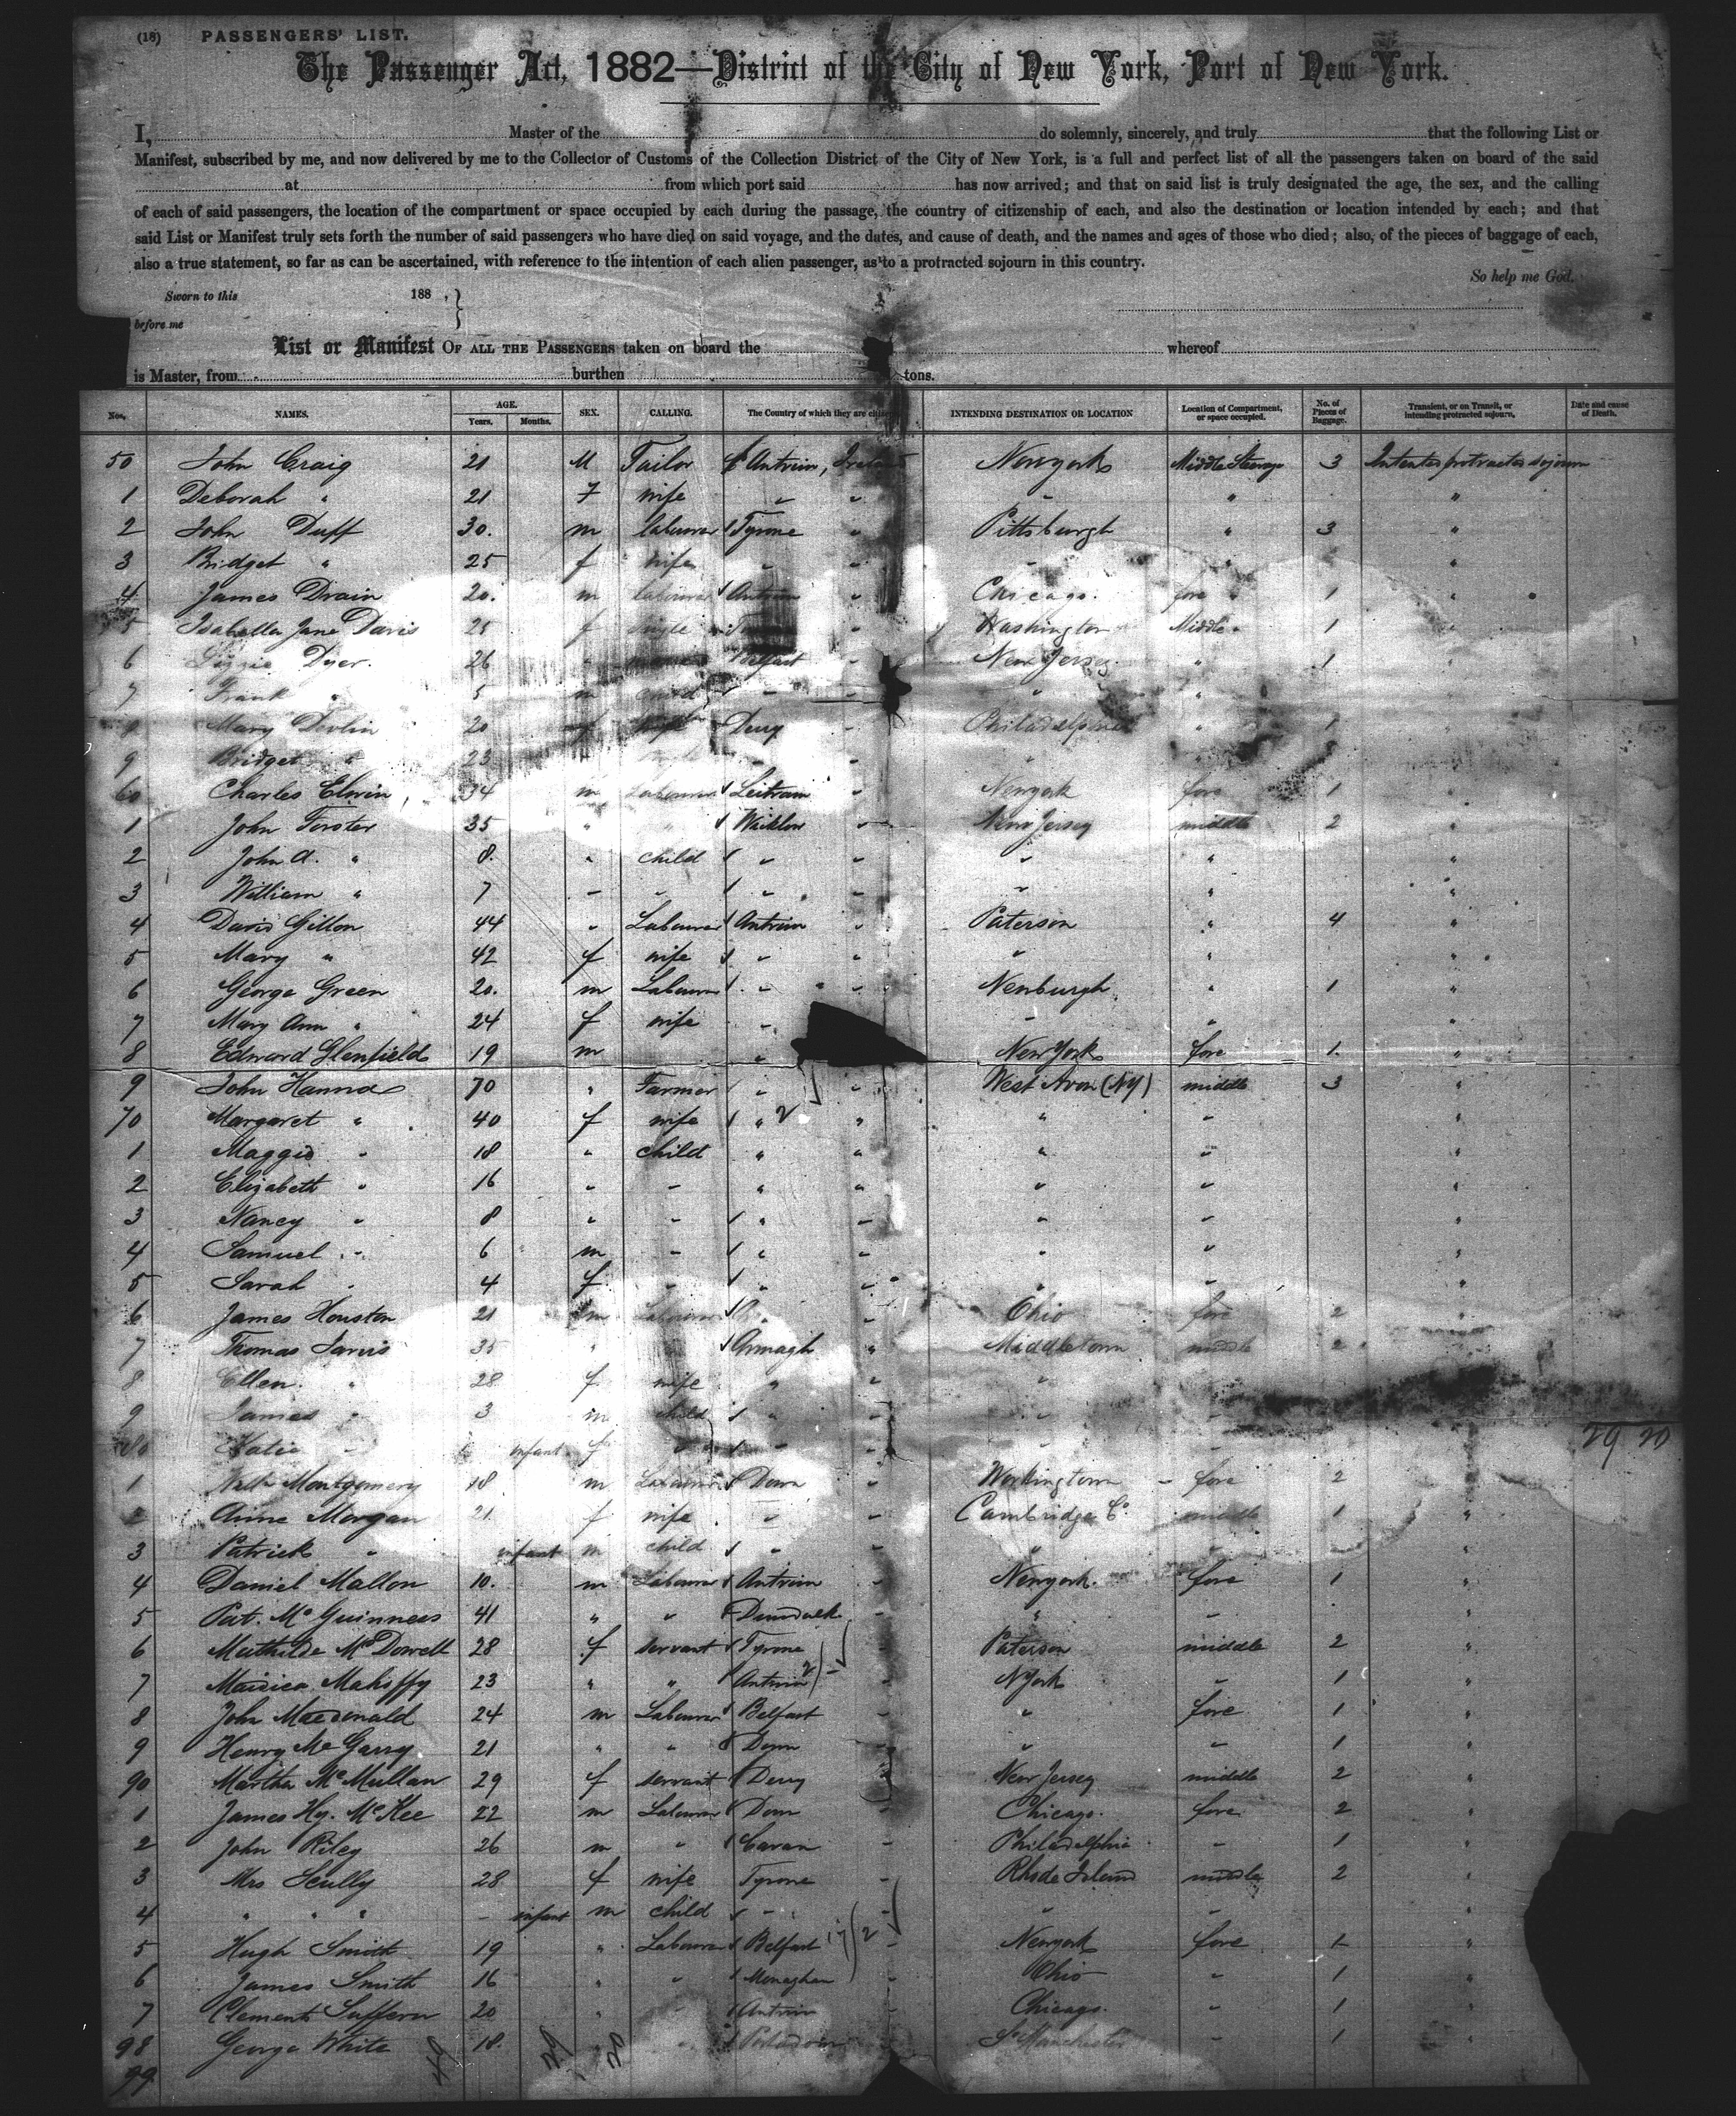 (18) PASSENGERS' LIST.
The Passenger Act, 1882—District of the City of New York, Port of New York.
I, Master of the do solemnly, sincerely, and truly that the following List or
Manifest, subscribed by me, and now delivered by me to the Collector of Customs of the Collection District of the City of New York, is a full and perfect list of all the passengers taken on board of the said
at from which port said has now arrived; and that on said list is truly designated the age, the sex, and the calling
of each of said passengers, the location of the compartment or space occupied by each during the passage, the country of citizenship of each, and also the destination or location intended by each; and that
said List or Manifest truly sets forth the number of said passengers who have died on said voyage, and the dates, and cause of death, and the names and ages of those who died; also, of the pieces of baggage of each,
also a true statement, so far as can be ascertained, with reference to the intention of each alien passenger, as to a protracted sojourn in this country.
So help me God.
Sworn to this 188 , }
before me
List or Manifest OF ALL THE PASSENGERS taken on board the whereof
is Master, from burthen tons.
Nos. NAMES. AGE. Years. Months. SEX. CALLING. The Country of which they are INTENDING DESTINATION OR LOCATION Location of Compartment, or space occupied. No. of Pieces of Baggage. Transient, or on Transit, or intending protracted sojourn. Date and cause of Death.
50 John Craig 21 M Tailor Antrim, Ireland Newyork Middle Steerage 3 Intends protracted sojourn
1 Deborah " 21 F wife " " " " "
2 John Duff 30. m labourer Tyrone " Pittsburgh " 3 "
3 Bridget " 25 f wife " " " " "
4 James Drain 20. m labourer Antrim " Chicago. fore " 1 "
5 Isabella Jane Davis 25 f single " Washington Middle " 1 "
6 Lizzie Dyer. 26 " Belfast " New Jersey " 1 "
7 Frank " 5 m child " " " " "
Mary Devlin 20 f Derry " Philadelphia " 1 "
9 Bridget " 23 " "
60 Charles Elwin 34 m Labourer Leitrim " Newyork fore 1 "
1 John Forster 35 " " Wicklow " New Jersey middle 2 "
2 John A. " 8. " child " " " " "
3 William " 7 " " " " " " "
4 David Gillon 44 " Labourer Antrim " Paterson " 4 "
5 Mary " 42 f wife " " " " "
6 George Green 20. m Labourer " " Newburgh " 1 "
7 Mary Ann " 24 f wife " " " "
8 Edward Glenfield 19 m " New York fore 1. "
9 John Hanna 70 " Farmer " " West Avon (NY) middle 3 "
70 Margaret " 40 f wife " 2 " " " "
1 Maggie " 18 " child " " " " "
2 Elizabeth " 16 " " " " " " "
3 Nancy " 8 " " " " " " "
4 Samuel " 6 m " " " " " "
5 Sarah " 4 f " " " " " "
6 James Houston 21 m Labourer " Ohio fore 2 "
7 Thomas Jarvis 35 " Armagh " Middletown middle 2 "
8 Ellen " 28 f wife " " "
9 James " 3 m child " " " "
80 Katie " infant f " " " " "
29 20
1 Montgomery 18 m Labourer Down " fore 2 "
2 Anne Morgan 21 f wife " " Cambridge Co. middle 1 "
3 Patrick " infant m child " " " "
4 Daniel Mallon 10. m Labourer Antrim " Newyork. fore 1 "
5 Pat. McGuinness 41 " " Dundalk " " " "
6 Mathilde McDowell 28 f servant Tyrone " Paterson middle 2 "
7 Mahaffy 23 " " Antrim 2 " NYork " 1 "
8 John Macdonald 24 m Labourer Belfast " " fore 1 "
9 Henry McGarry 21 " " Down " " " 1 "
90 Martha McMullan 29 f servant Derry New Jersey middle 2 "
1 James Hy. McKee 22 m Labourer Down " Chicago. fore 2 "
2 John Riley 26 m " Cavan " Philadelphia " 1 "
3 Mrs Scully 28 f wife Tyrone " Rhode Island middle 2 "
4 " " " infant m child " " " " "
5 Hugh Smith 19 " Labourer Belfast 2 " Newyork fore 1 "
6 James Smith 16 " " Monaghan " Ohio " 1 "
7 Clement Suffern 20 " " Antrim Chicago. " 1 "
98 George White 18. " " " 1 "
99